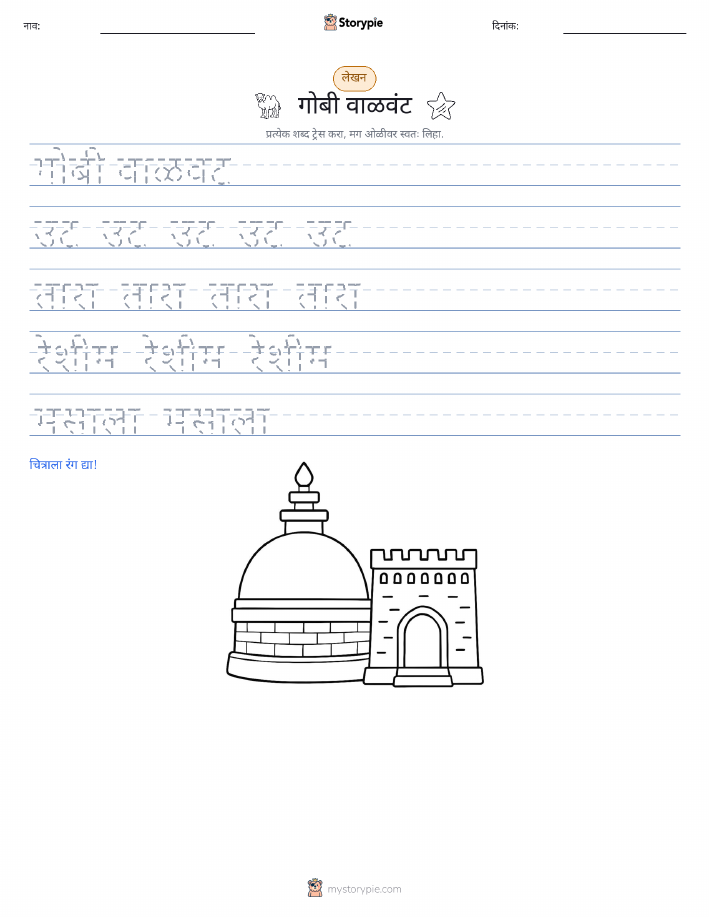 नाव:
Storypie
दिनांक:
लेखन
गोबी वाळवंट
प्रत्येक शब्द ट्रेस करा, मग ओळीवर स्वतः लिहा.
गोबी वाळवट
उट उट उट उट उट
तारा तारा तारा तारा
रेशीम रेशीम रेशीम
मसाला मसाला
चित्राला रंग द्या!
mystorypie.com